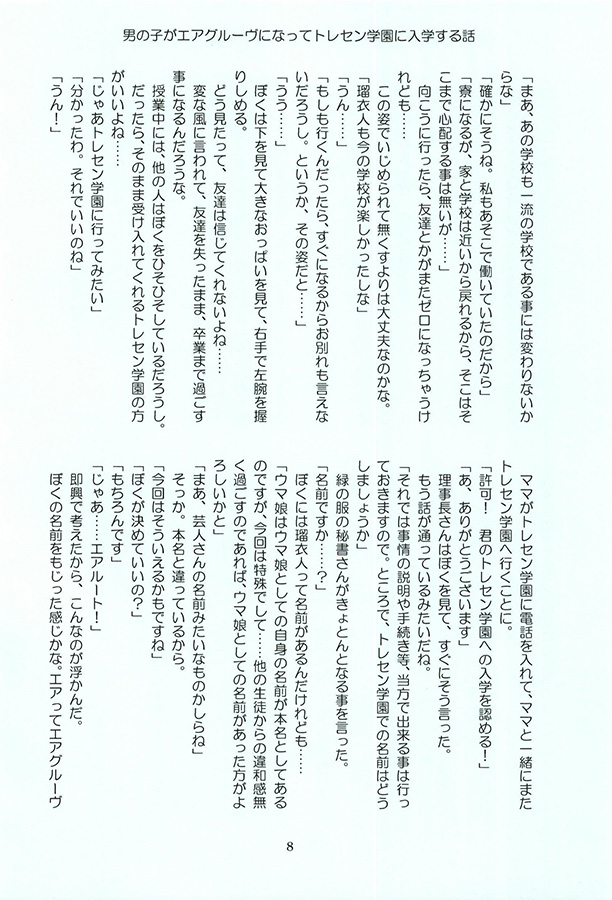 男の子がエアグルーヴになってトレセン学園に入学する話
「まあ、あの学校も一流の学校である事には変わりないか
らな」
「確かにそうね。私もあそこで働いていたのだから」
「寮になるが、家と学校は近いから戻れるから、そこはそ
こまで心配する事は無いが……」
向こうに行ったら、友達とかがまたゼロになっちゃうけ
れども……
この姿でいじめられて無くすよりは大丈夫なのかな。
「瑠衣人も今の学校が楽しかったしな」
「うん……」
「もしも行くんだったら、すぐになるからお別れも言えな
いだろうし。というか、その姿だと……」
「うう……」
ぼくは下を見て大きなおっぱいを見て、右手で左腕を握
りしめる。
どう見たって、友達は信じてくれないよね……
変な風に言われて、友達を失ったまま、卒業まで過ごす
事になるんだろうな。
授業中には、他の人はぼくをひそひそしているだろうし。
だったら、そのまま受け入れてくれるトレセン学園の方
がいいよね……
「じゃあトレセン学園に行ってみたい」
「分かったわ。それでいいのね」
「うん！」
ママがトレセン学園に電話を入れて、ママと一緒にまた
トレセン学園へ行くことに。
「許可！　君のトレセン学園への入学を認める！」
「あ、ありがとうございます」
理事長さんはぼくを見て、すぐにそう言った。
もう話が通っているみたいだね。
「それでは事情の説明や手続き等、当方で出来る事は行っ
ておきますので。ところで、トレセン学園での名前はどう
しましょうか」
緑の服の秘書さんがきょとんとなる事を言った。
「名前ですか……？」
ぼくには瑠衣人って名前があるんだけれども……
「ウマ娘はウマ娘としての自身の名前が本名としてある
のですが、今回は特殊でして……他の生徒からの違和感無
く過ごすのであれば、ウマ娘としての名前があった方がよ
ろしいかと」
「まあ、芸人さんの名前みたいなものかしらね」
そっか。本名と違っているから。
「今回はそういえるかもですね」
「ぼくが決めていいの？」
「もちろんです」
「じゃあ……エアルート！」
即興で考えたから、こんなのが浮かんだ。
ぼくの名前をもじった感じかな。エアってエアグルーヴ
8